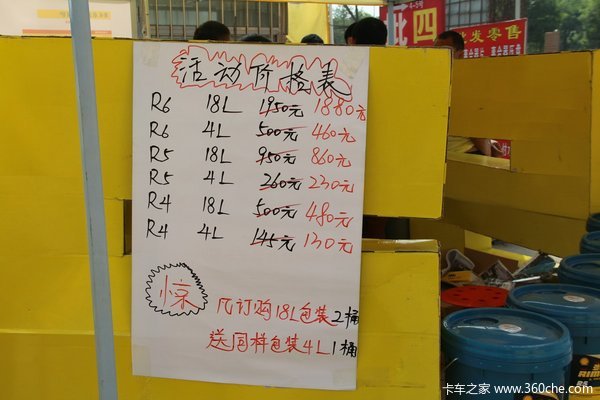 活动价格表
R6 18L 1950元 1880元
R6 4L 500元 460元
R5 18L 950元 860元
R5 4L 260元 230元
R4 18L 500元 480元
R4 4L 145元 130元
惊
凡订购18L包装2桶
送同样包装4L1桶
四
批发零售
卡车之家 www.360che.com